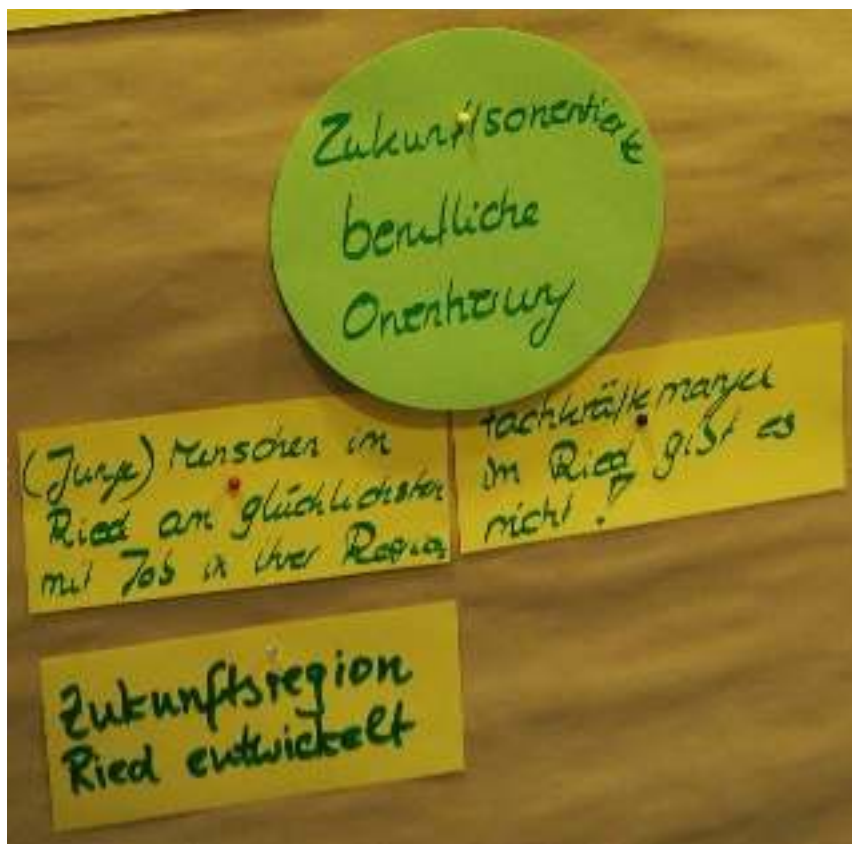 Zukunftsorientierte
berufliche
Orientierung
(Junge) Menschen im
Ried am glücklichsten
mit Job in ihrer Region
Fachkräftemangel
im Ried gibt es
nicht!
Zukunftsregion
Ried entwickelt